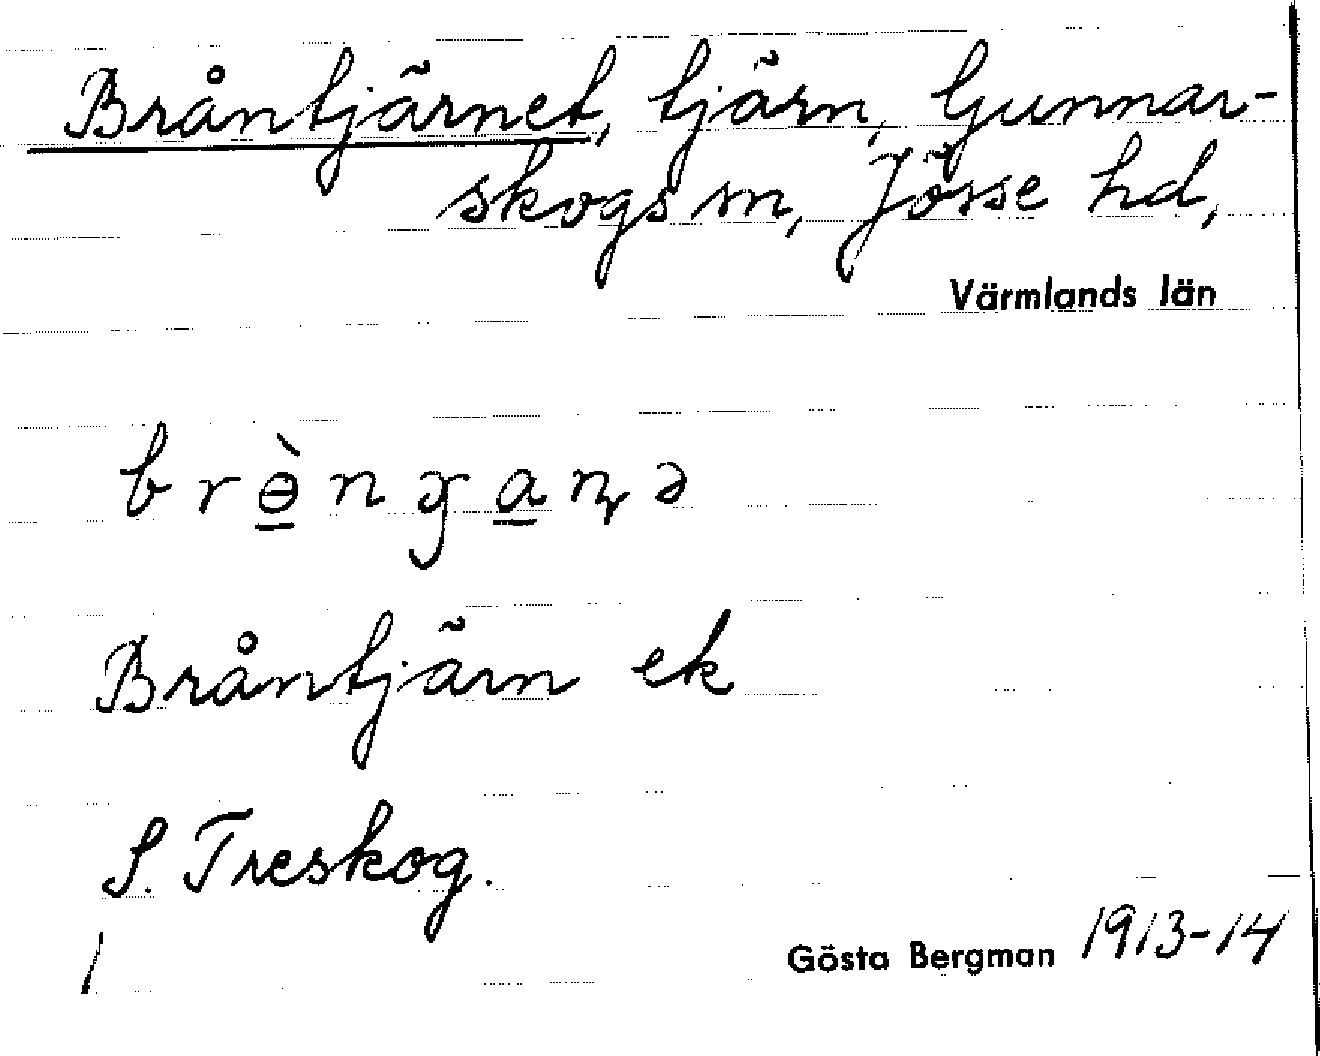 Bråntjärnet, tjärn, Gunnar-
skogs sn, Jösse hd,
Värmlands län
Bråntjärn ek
S. Treskog.
1
Gösta Bergman 1913-14